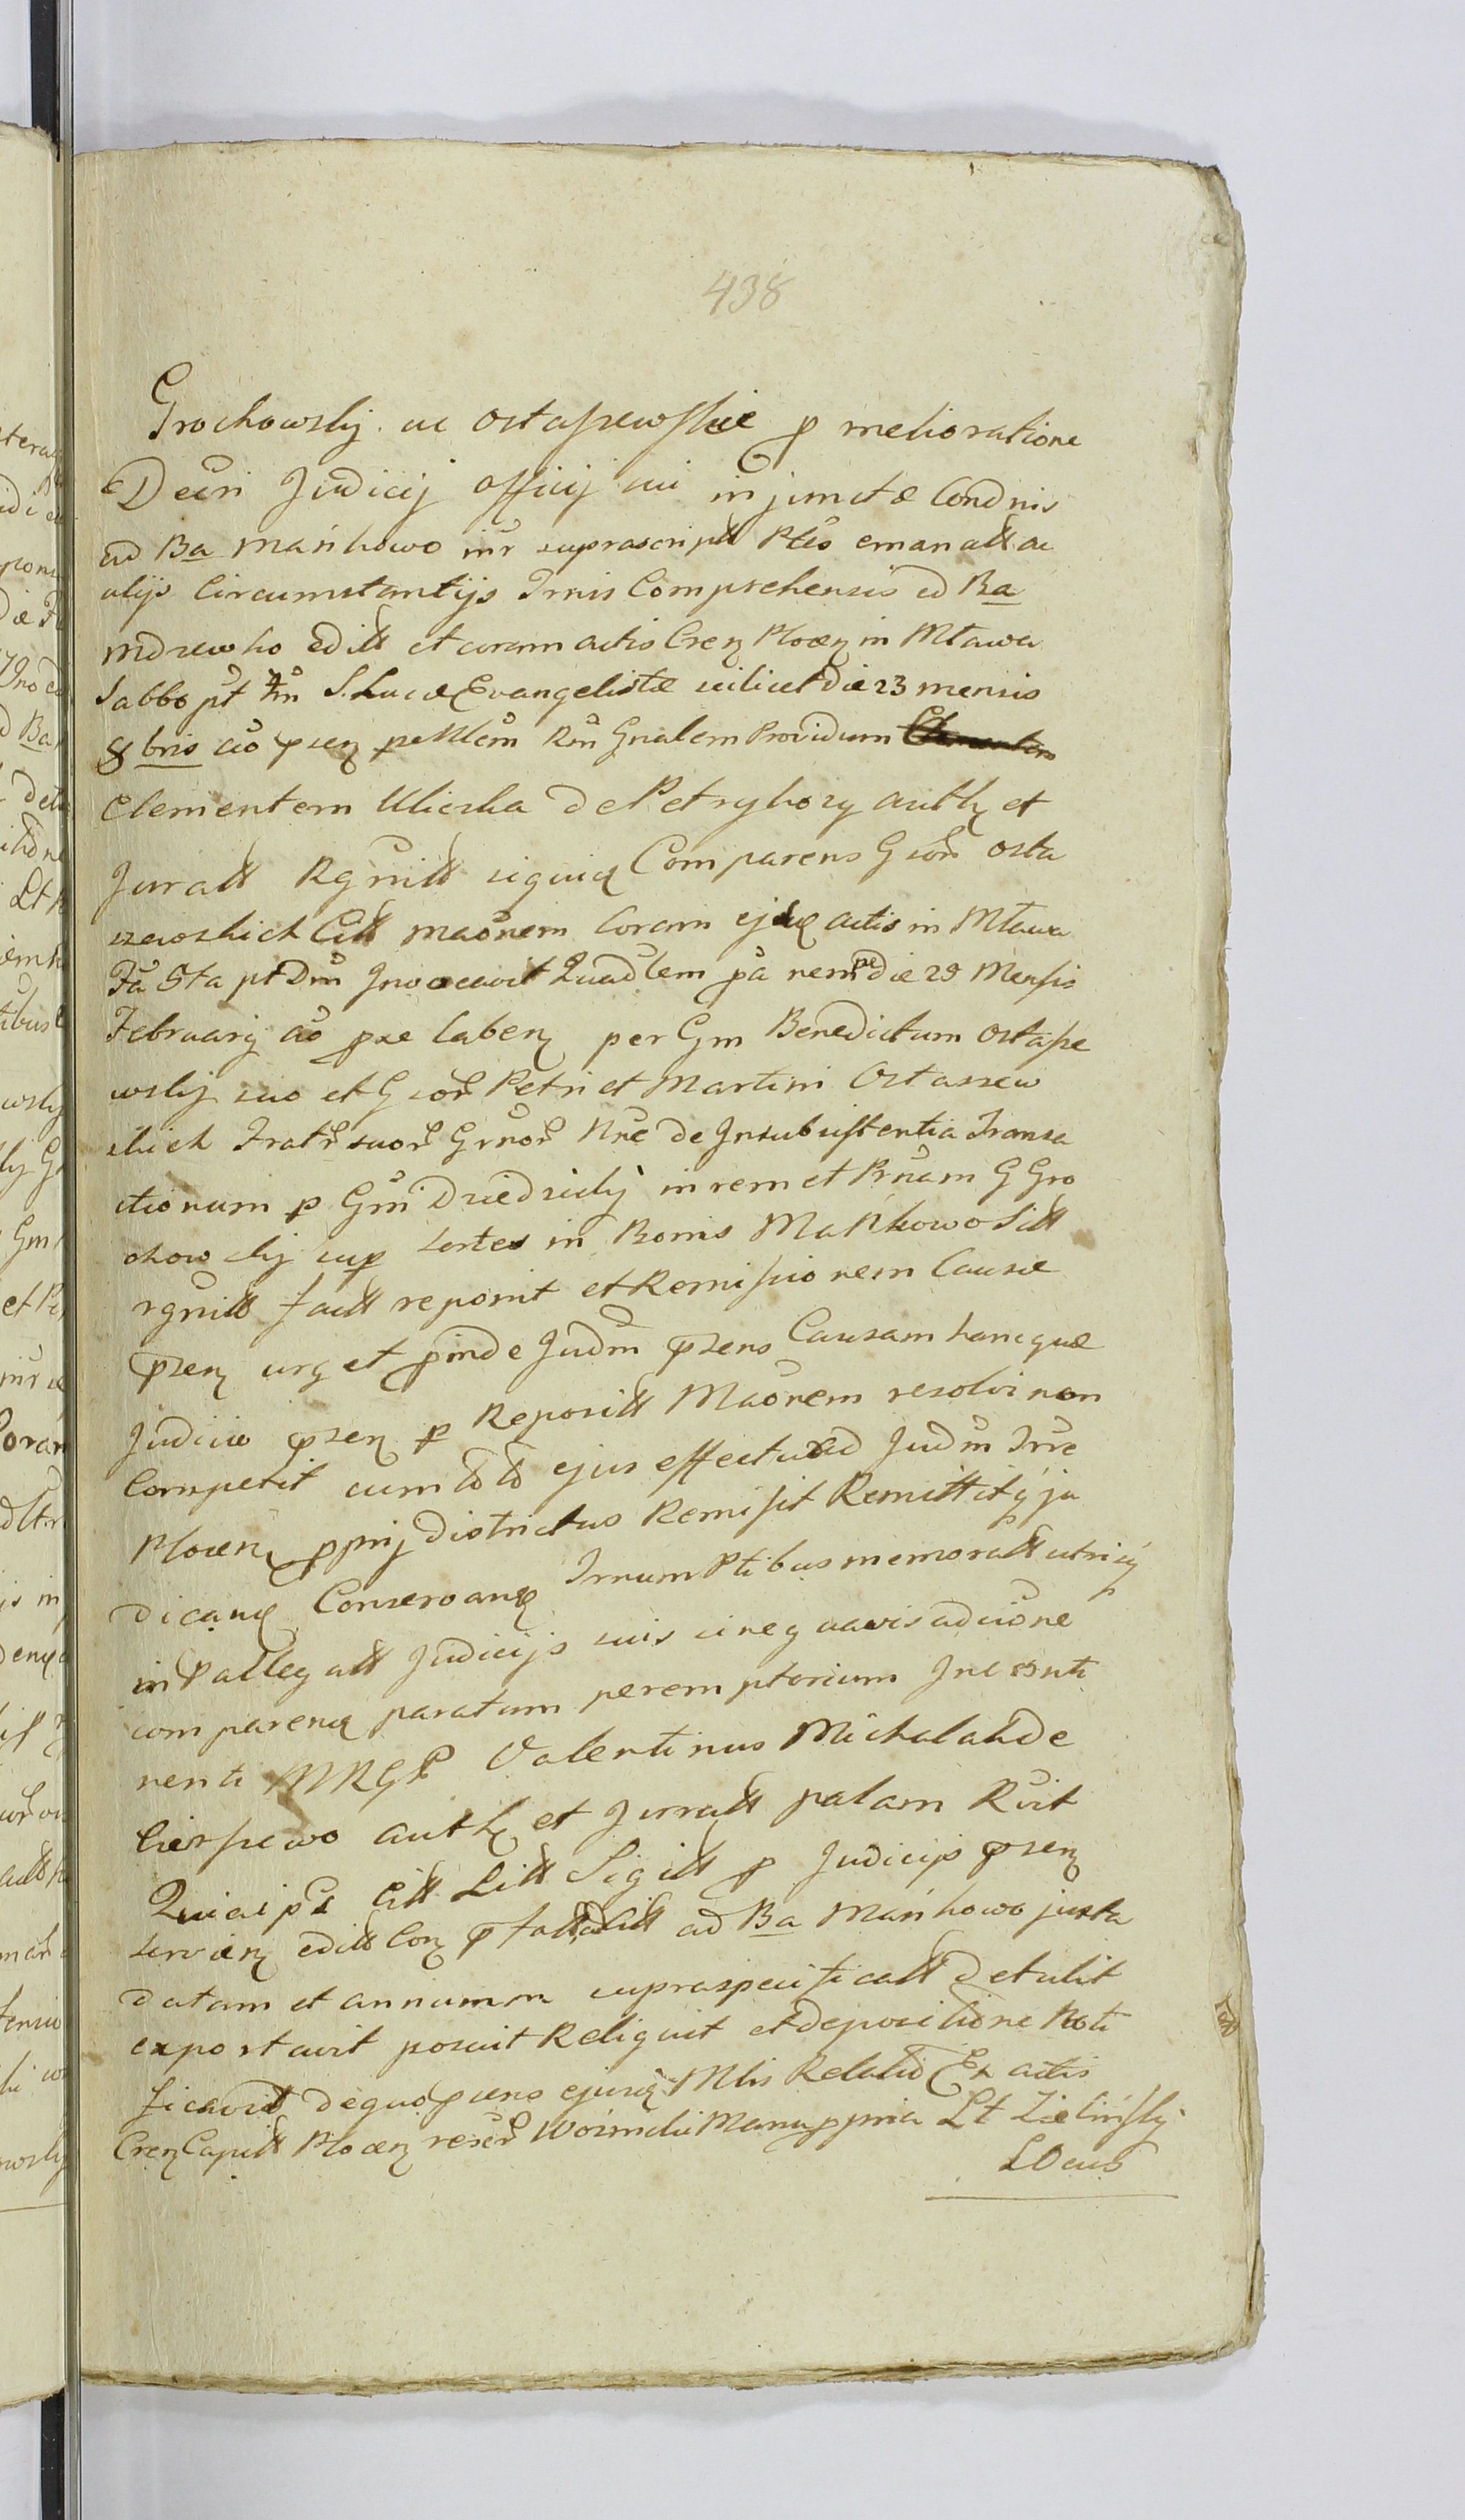 438
Grochowskij ac Ostaszewskie p melioratione
Decri Judicij officij sui injunctæ Condnis
ad Ba Mańkowo inr suprascriptt Ptes emanatt ac
alijs Circumstantijs Trnis Comprehensis ad Ba
Mdzewko editt et coram actis Cren Plocen in Mława
Sabbo pt Fm S. Lucæ Evangelistæ scilicet die 23 mensis
8bris ao psen per Mlem Rm Gnalem Providum
Clementem Uliczka de Petrykozy auth et
Juratt Rgnitt siquid Comparens G sor Osta
szewskich Citt Maonem Coram ejdq actis in Mława
Fa 5ta pt Dm Jnvocavit Quadlem pa nempe die 29 Mensis
Februarij ao pse laben per Gm Benedictum Ostasze
wskij suo et G sor Petri et Martini Ostaszew
skich Fratr suor Grnor Nne de Jnsubsistentia Transa
ctionum p Gm Dziedzicky in rem et Prnam G Gro
chowskij sup sortes in Bonis Mańkowo Sitt
rgnitt factt reponit et Remissionem Causæ
psen urget pinde Judm psens Causam hancquæ
Judicio psen p Repositt Maonem resolvi non
Competit cum toto ejus effectu ad Judm Trre
Plocen pprij Districtus Remisit Remittitq ju
dicanq Conservanq Trnum Ptibus memoratt utrisq
in pallegatt Judicijs suis sine g aavis adcitone
comparenq paratum peremptorium Jnconti
nenti MRGP Valentinus Michalak de
Cierszewo auth et Juratt palam Rvit
Quia ips Citt Litt Sigitt p Judicijs psen
servien editt Con pfatt Citt ad Ba Mańkowo juxta
datam et annum m supraspecificatt detulit
exportavit posuit Reliquit et depositione Noti
ficavit de quo psens ejusq Mlis Relatio Ex actis
Cren Capitt Plocen rescr Woźnicki Manu ppria Lt Zielińskij
L Ocus